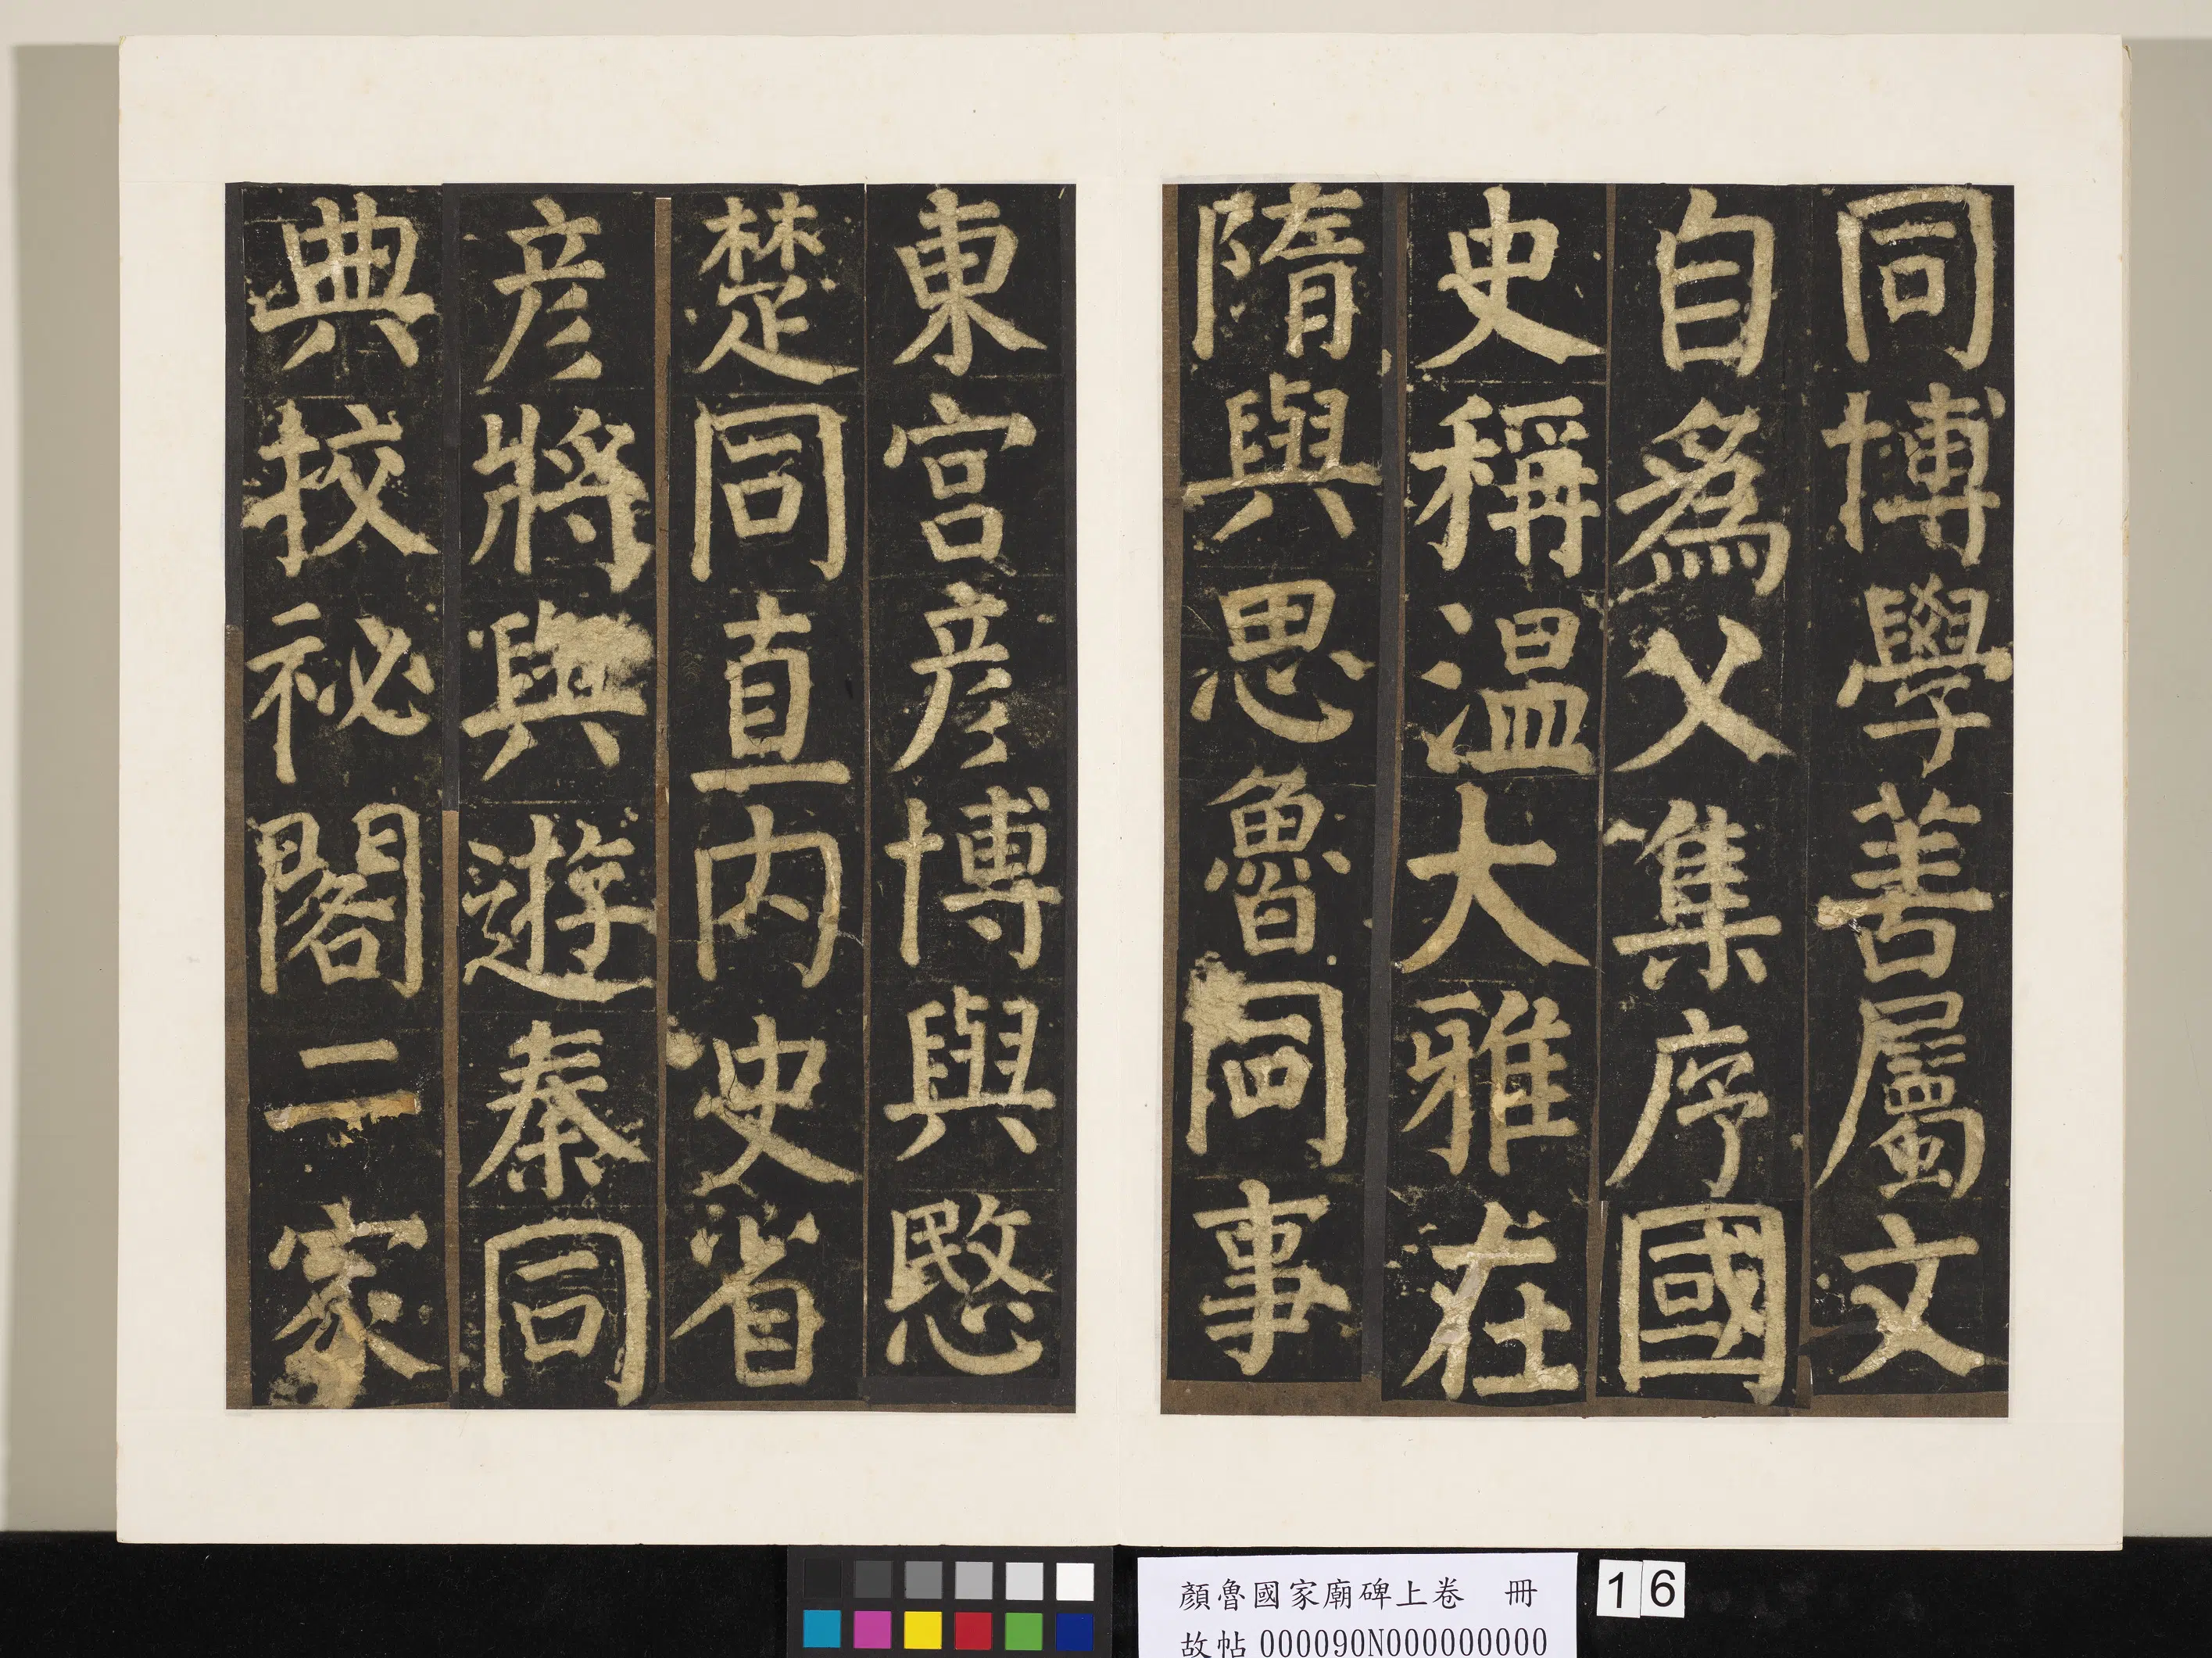 同博學善屬文
自為父集序國
史稱温大雅在
隋與思魯同事
東宮彦博與愍
楚同直内史省
彦將與遊秦同
典挍祕閣二家
顏魯國家廟碑上卷　冊
故帖 000090N000000000
16